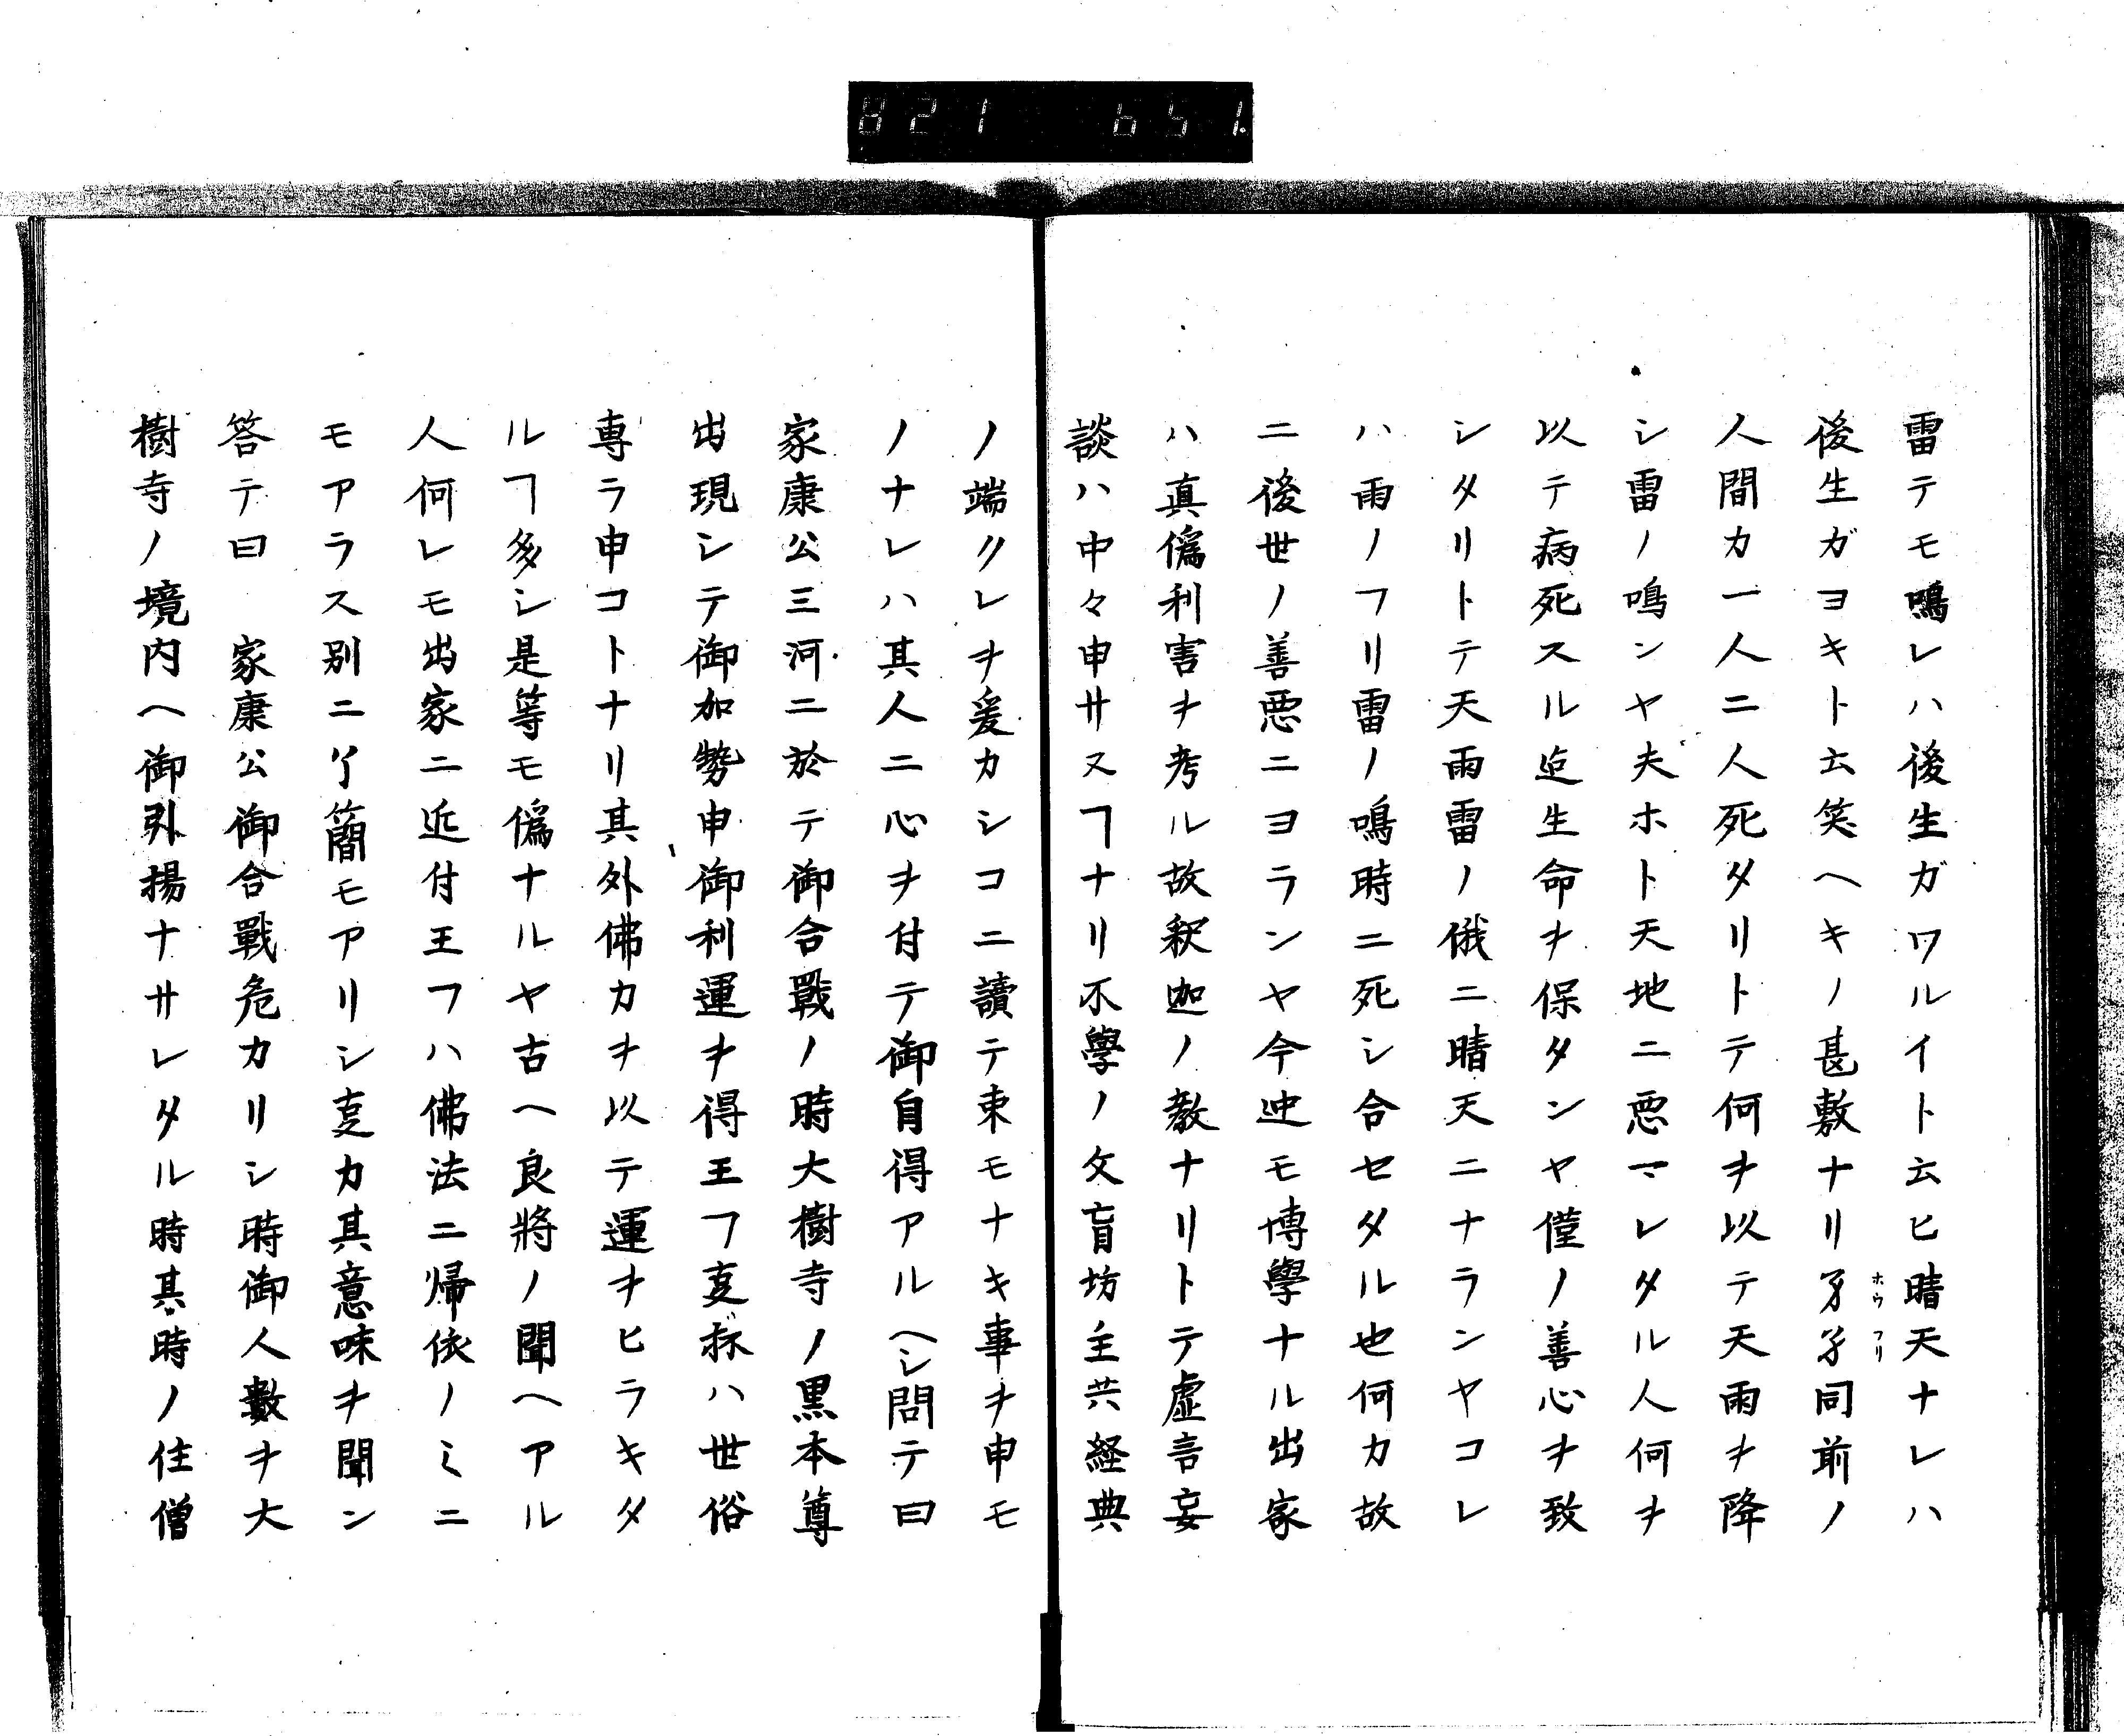 821 651.
雷テモ鳴レハ後生ガワルイト云ヒ晴天ナレハ
後生ガヨキト云笑ヘキノ甚敷ナリ孑孑同前ノ
ホウフリ
人間カ一人二人死タリトテ何ヲ以テ天雨ヲ降
シ雷ノ鳴ンヤ夫ホト天地ニ悪マレタル人何ヲ
以テ病死スル迄生命ヲ保タンヤ僅ノ善心ヲ致
シタリトテ天雨雷ノ俄ニ晴天ニナランヤコレ
ハ雨ノフリ雷ノ鳴時ニ死シ合セタル也何カ故
ニ後世ノ善悪ニヨランヤ今迚モ博學ナル出家
ハ真偽利害ヲ考ル故釈迦ノ教ナリトテ虚言妄
談ハ中々申サヌヿナリ不學ノ文盲坊主共経典
ノ端クレヲ爰カシコニ讀テ束モナキ事ヲ申モ
ノナレハ其人ニ心ヲ付テ御自得アルヘシ問テ曰
家康公三河ニ於テ御合戰ノ時大樹寺ノ黒本尊
出現シテ御加勢申御利運ヲ得玉フ㕝抔ハ世俗
専ラ申コトナリ其外佛力ヲ以テ運ヲヒラキタ
ルヿ多シ是等モ偽ナルヤ古ヘ良將ノ聞ヘアル
人何レモ出家ニ近付玉フハ佛法ニ帰依ノミニ
モアラス別ニ了簡モアリシ㕝カ其意味ヲ聞ン
答テ曰　家康公御合戰危カリシ時御人數ヲ大
樹寺ノ境内ヘ御引揚ナサレタル時其時ノ住僧